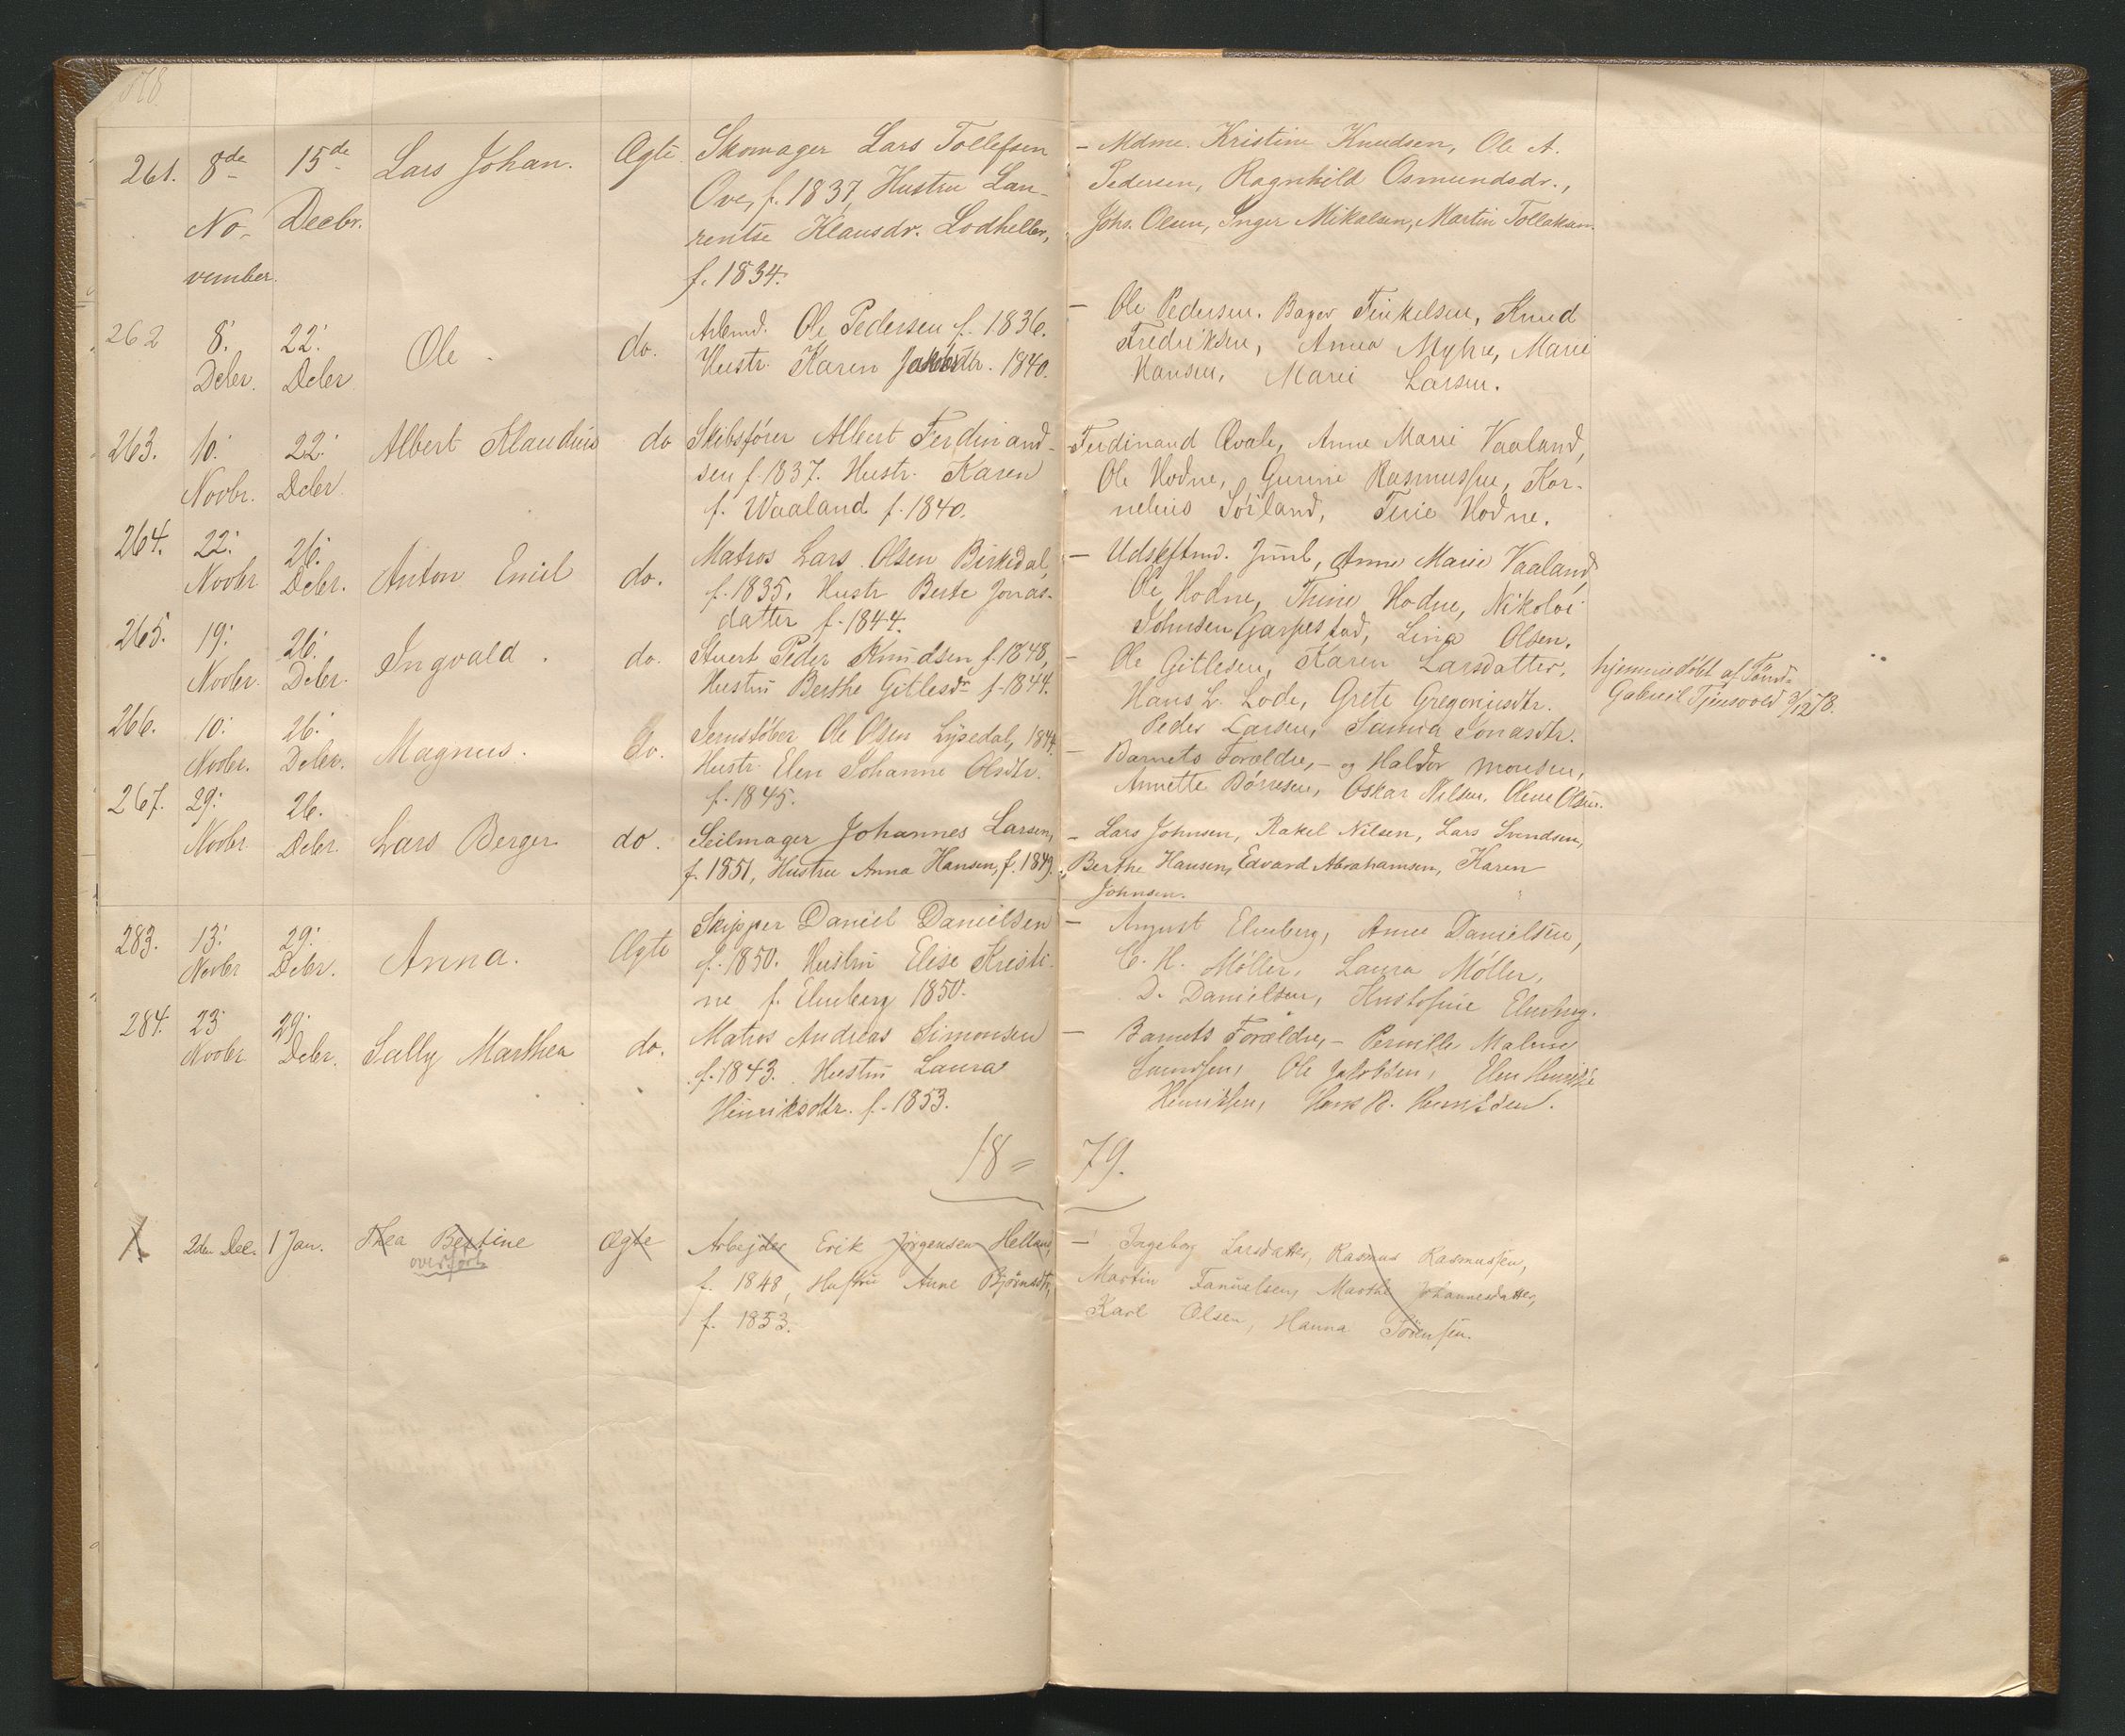 1878.
261. 8de 15de Lars Johan. Ægte Skomager Lars Tollefsen
No- Decbr. Ove, f. 1837, Hustru Lau-
vember. rentse Klausdr. Lodheller,
f. 1834.
– Mdme. Kristine Knudsen, Ole A.
Pedersen, Ragnhild Osmundsdr.,
Johs. Olsen, Inger Mikalsen, Martin Tollaksen.
262 8. 22. Ole do. Arbmd. Ole Pedersen f. 1836.
Dcbr. Dcbr. Hustr. Karen Jakobsdtr. 1840.
– Ole Pedersen. Bager Finkelsen, Knud
Fredriksen, Anna Myhre, Marie
Hansen, Marie Larsen.
263. 10. 22. Albert Klaudius do Skibsfører Albert Ferdinand-
Novbr. Dcbr. sen f. 1837. Hustr. Karen
f. Waaland f. 1840.
Ferdinand Qvale, Anne Marie Vaaland,
Ole Hodne, Gurine Rasmussen, Kor-
nelius Sörland, Tine Hodne.
264. 22. 26. Anton Emil do. Matros Lars Olsen Birkedal,
Novbr Dcbr. f. 1835. Hustr Berte Jonas-
datter f. 1844.
– Udskftmd. Juul, Anne Marie Vaaland,
Ole Hodne, Thine Hodne, Nikolai
Johnsen Garpestad, Lina Olsen.
265. 19. 26. Ingvald. do. Stuert Peder Knudsen f. 1848,
Novbr. Dcbr. Hustru Berthe Gitlesdr f. 1844.
– Ole Gitlesen, Karen Larsdatter,
Hans L. Lode, Grete Gregoriusdtr.
Peder Larsen, Samia Jonasdtr.
hjemmedöbt af
Gabriel Tjensvold 3/12 78.
266. 10. 26. Magnus. do. Jernstøber Ole Olsen Lysedal, 1844.
Novbr. Dcbr. Hustr. Elen Johanne Olsdtr.
f. 1845.
– Barnets Forældre, – og Haldor Monsen,
Annette Børresen, Oskar Nilsen, Olene Olsen.
267. 29. 26. Lars Berger do. Seilmager Johannes Larsen,
Novbr Dcbr. f. 1851, Hustru Anna Hansen, f. 1849.
– Lars Johnsen, Rakel Nilsen, Lars Svendsen,
Berthe Hansen, Edvard Abrahamsen, Karen
Johnsen.
283. 13. 29. Anna. Ægte Skipper Daniel Danielsen
Novbr Dcbr. f. 1850. Hustru Elise Kristi-
ne f. Elmberg 1850.
– August Elmberg, Anne Danielsen,
C. H. Møller, Laura Møller,
D. Danielsen, Kristofine Elmberg.
284. 23 29. Sally Marthea do. Matros Andreas Simonsen
Novbr Dcbr. f. 1843. Hustru Laura
Hinriksdtr. f. 1853.
– Barnets Forældre, – Pernille Malene
Ole Jakobsen, Elen Henrikke
Henriksen, Hans R. Henriksen.
18 = 79.
1. 2den Dec. 1 Jan. Thea Bertine Ægte Arbejder Erik Jørgensen Helland,
overført f. 1848, Hustru Anne Bjørnsdtr,
f. 1853.
– Ingeborg Larsdatter, Rasmus Rasmussen,
Martin Fanuelsen, Marthe Johannesdatter,
Karl Olsen, Hanna Sörensen.